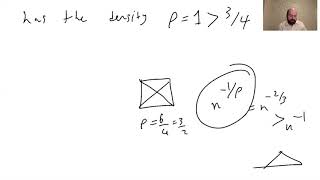 has the density ρ = 1 > 3/4
ρ = 6/4 = 3/2
n^{-1/ρ} = n^{-2/3}
> n^{-1}